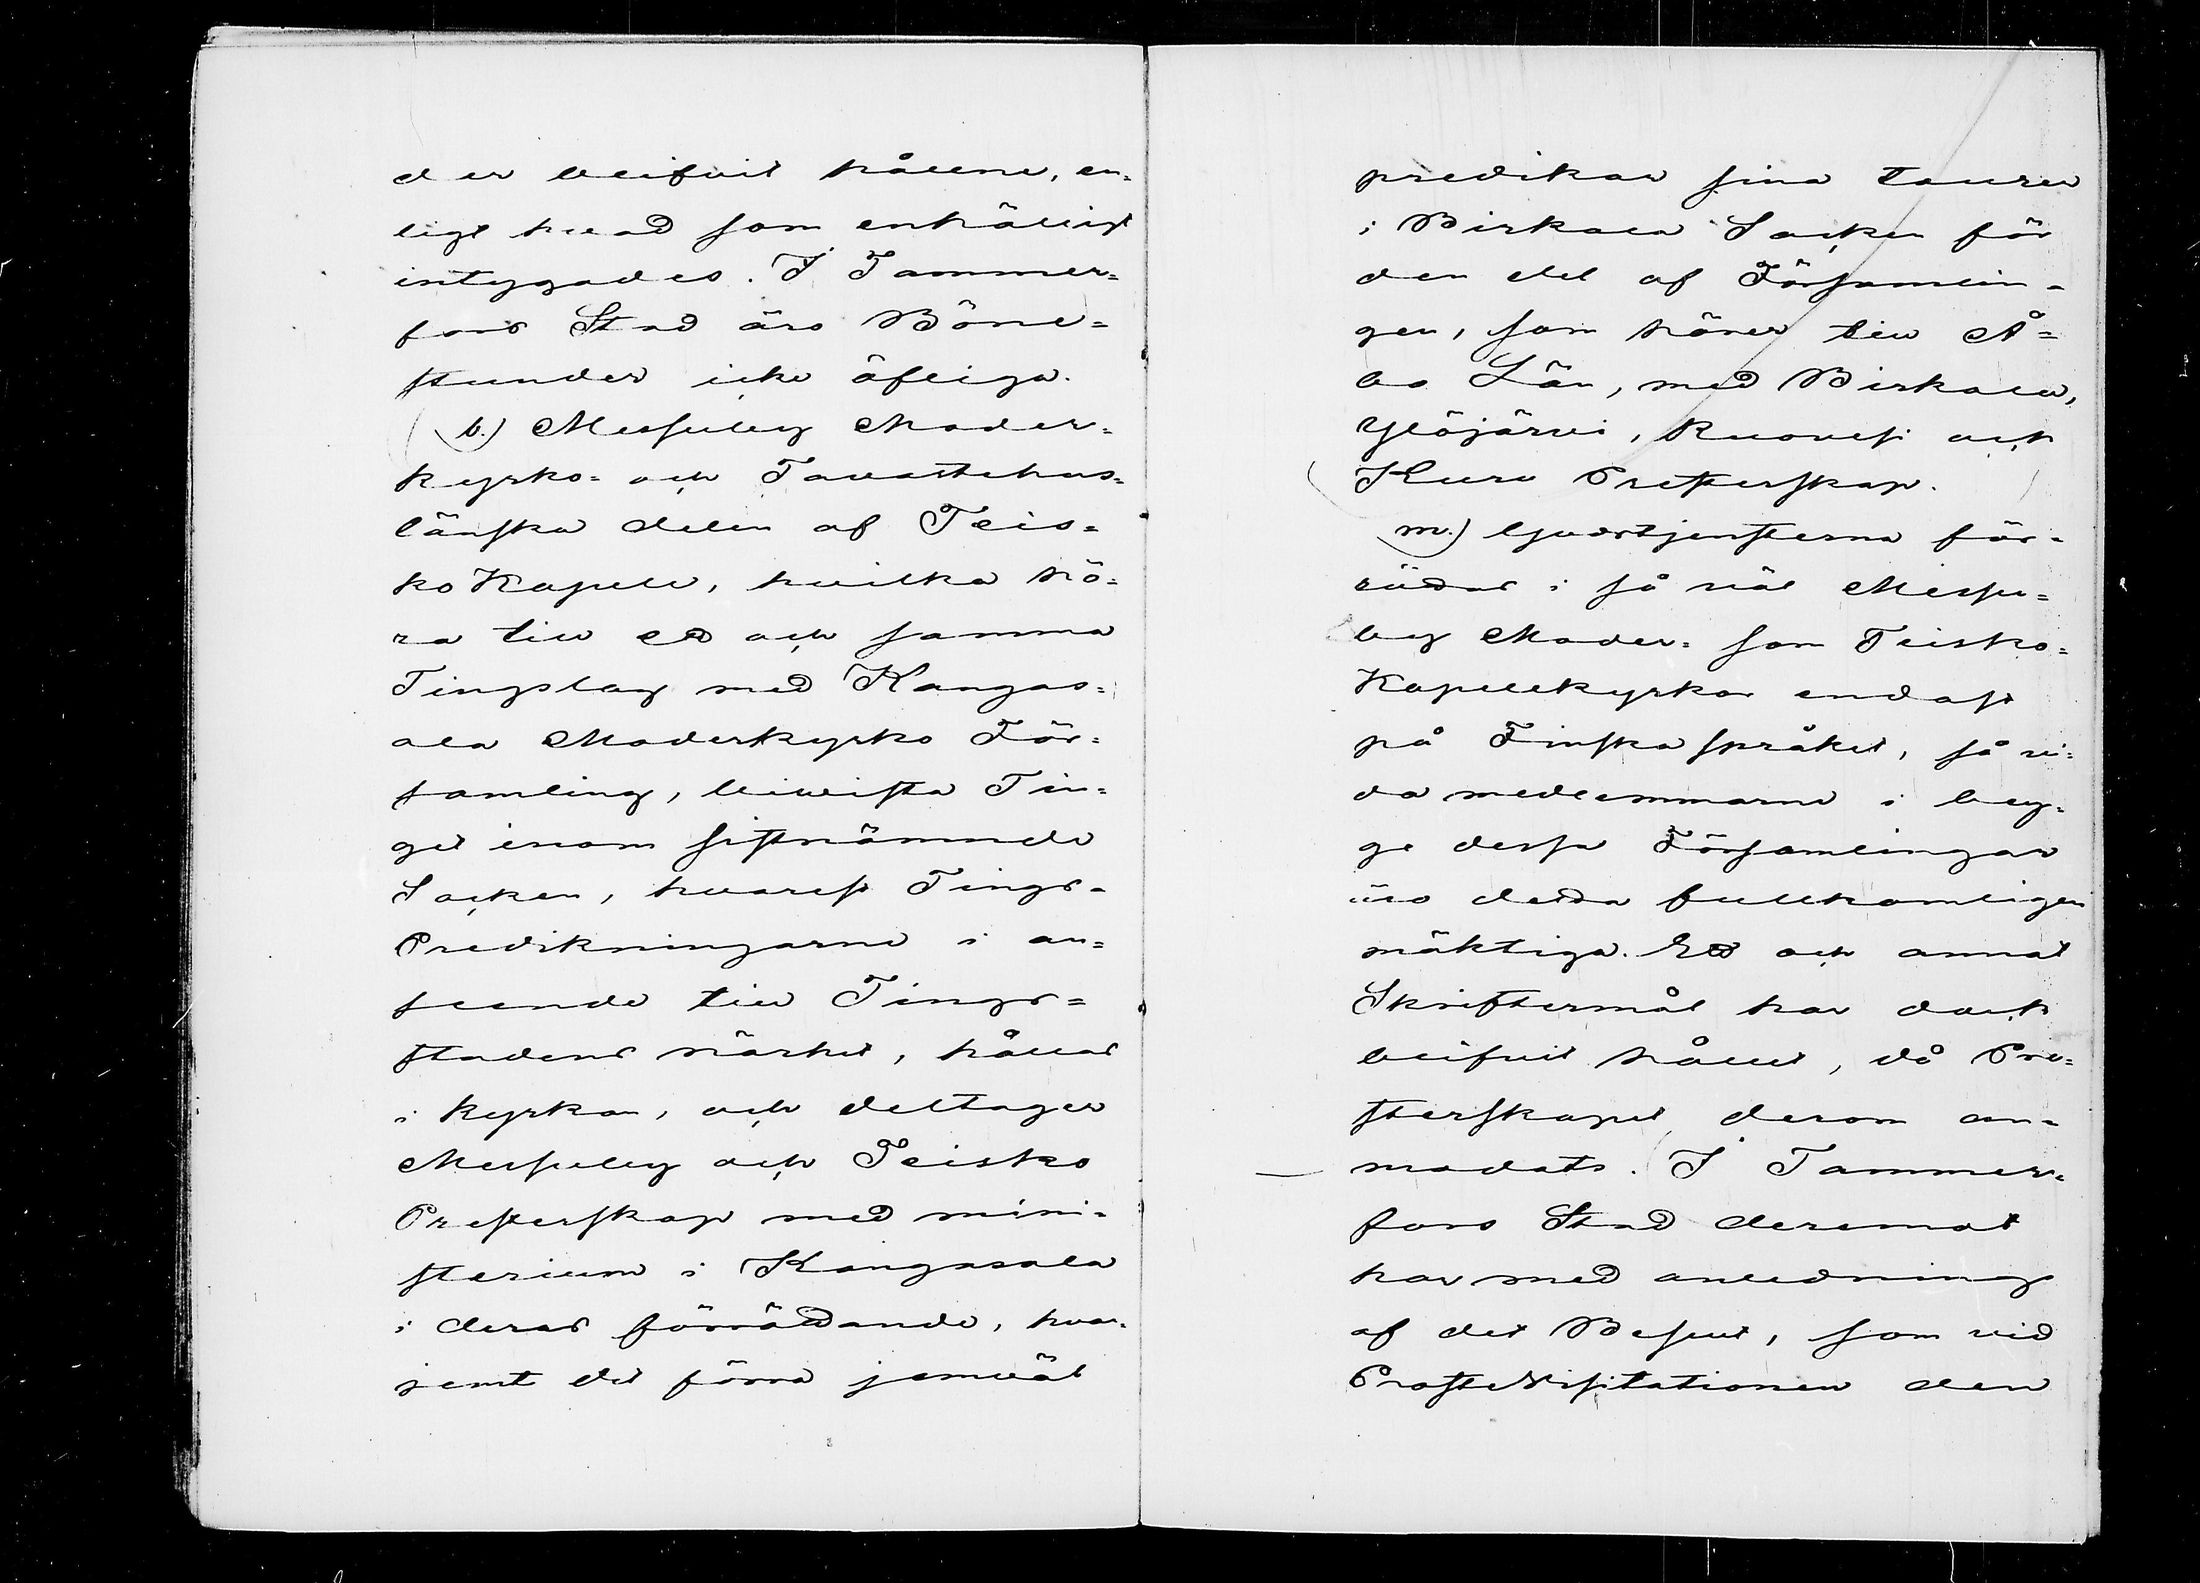 der blifvit hållne, en=
ligt hvad som enhälligt
intygades. I Tammer=
fors Stad äro Böne=
stunder icke öfliga.
l.) Messuby Moder=
kyrko- och Tavastehus=
länska delen af Teis=
ko Kapell, hvilka hö=
ra till ett och samma
Tingslag med Kangas=
ala Moderkyrko För=
samling, bivista Tin=
get inom sistnämnde
Socken, hvarest Tings=
Predikningarne i an=
seende till Tings=
stadens närhet, hållas
i kyrkan, och deltager
Messuby och Teisko
Presterskap med mini=
sterium i Kangasala
i deras förrättande, hvar=
jemt det förra jemväl
predikar sina tourer
i Birkala Socken för
den del af Församlin=
gen, som hörer till Å=
bo Län, med Birkala,
Ylöjärvi, Ruovesi och
Kuru Presterskap.
m.) Gudstjensterna för=
rättas i så väl Messu=
by Moder= som Teisko=
Kapellkyrkor endast
på Finska språket, så vi=
da medlemmarne i byg=
ge dessa Församlingar
äro detta fullkomligen
mäktiga. Ett och annat
Skriftermål har dock
blifvit hållet, då Pre=
sterskapet derom an=
modats. I Tammer=
fors Stad deremot
har med anledning
af det Beslut, som vid
ProsteVisitationen den